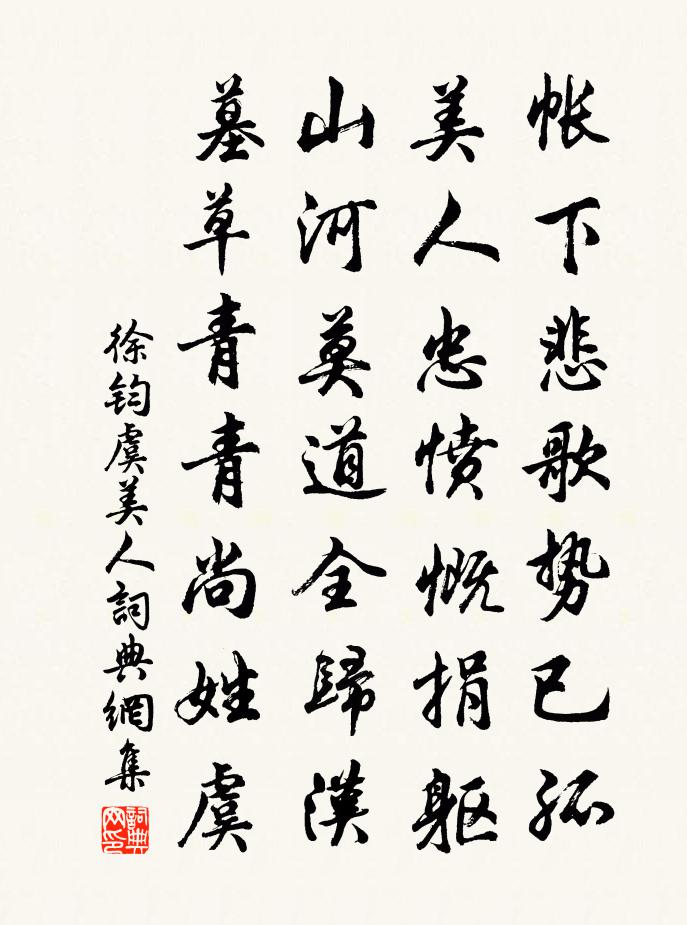 帐下悲歌势已孤
美人忠愤慨捐躯
山河莫道全歸漢
墓草青青尚姓虞
徐鈞虞美人詞典網集
詞典网印